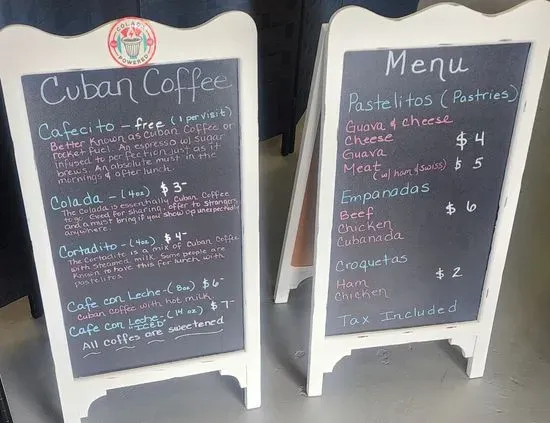 COLADA
POWERED
Cuban Coffee
Cafecito - free (1 per visit)
Better Known as Cuban Coffee or
rocket fuel. An espresso w/ sugar
infused to perfection just as it
brews. An absolute must in the
mornings & after lunch.
Colada - (4oz) $3-
The Colada is essentially Cuban Coffee
to go. Good for sharing, offer to strangers,
and a must bring if you show up unexpectedly
anywhere.
Cortadito - (4oz) $4-
The Cortadito is a mix of Cuban Coffee
with steamed milk. Some people are
Known to have this for lunch with
Pastelitos.
Cafe con Leche - (8oz) $6-
Cuban coffee with hot milk
Cafe con Leche - (14oz) $7-
"ICED"
All coffes are sweetened
Menu
Pastelitos (Pastries)
Guava & Cheese
Cheese $4
Guava
Meat (w/ ham & swiss) $5
Empanadas
Beef $6
Chicken
Cubanada
Croquetas
Ham $2
Chicken
Tax Included